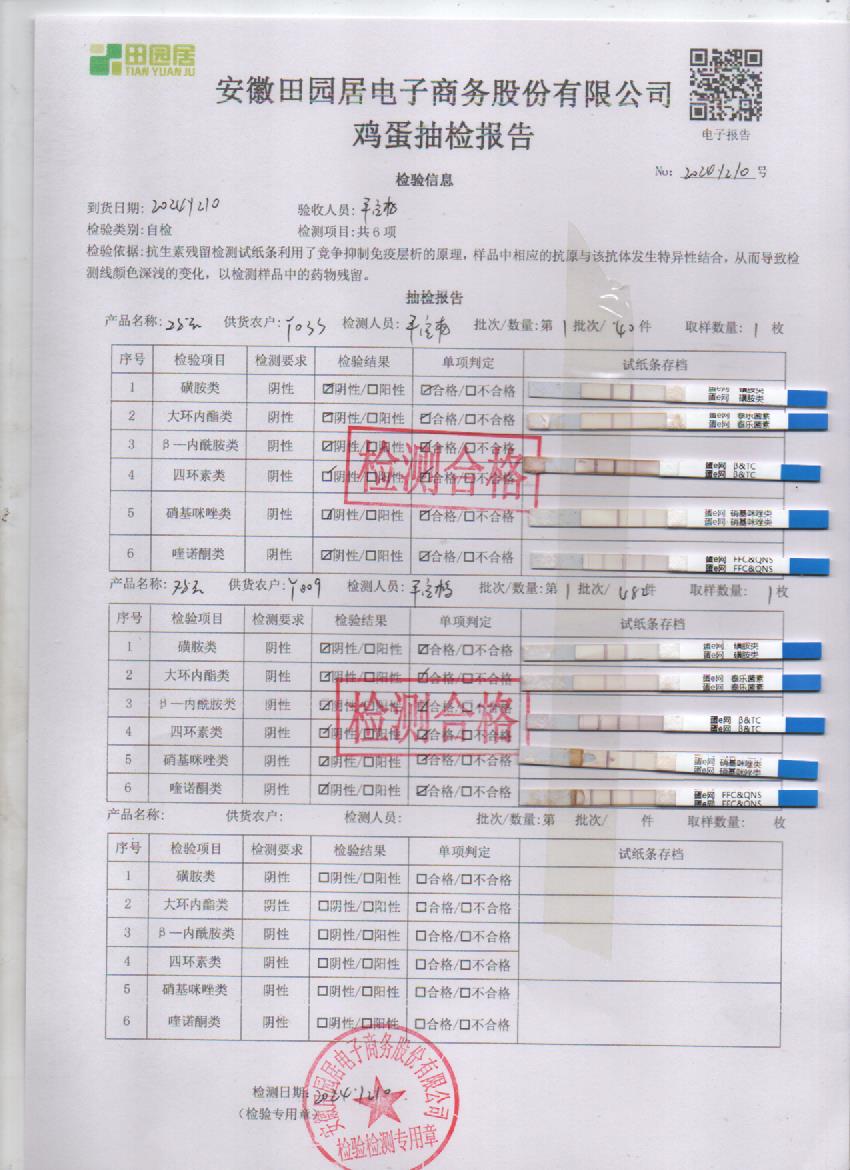 田园居
TIAN YUAN JU
安徽田园居电子商务股份有限公司
鸡蛋抽检报告
电子报告
No: 20241210 号
检验信息
到货日期: 20241210 验收人员:
检验类别:自检 检测项目:共6项
检验依据:抗生素残留检测试纸条利用了竞争抑制免疫层析的原理，样品中相应的抗原与该抗体发生特异性结合，从而导致检
测线颜色深浅的变化，以检测样品中的药物残留。
抽检报告
产品名称: 供货农户: Y033 检测人员: 批次/数量:第 1 批次/ 40 件 取样数量: 1 枚
序号 检验项目 检测要求 检验结果 单项判定 试纸条存档
1 磺胺类 阴性 ☑阴性/☐阳性 ☑合格/☐不合格 蛋e网 磺胺类
蛋e网 磺胺类
2 大环内酯类 阴性 ☑阴性/☐阳性 ☑合格/☐不合格 蛋e网 泰乐菌素
蛋e网 泰乐菌素
3 β—内酰胺类 阴性 ☑阴性/☐阳性 ☑合格/☐不合格
检测合格
4 四环素类 阴性 ☑阴性/☐阳性 ☑合格/☐不合格 蛋e网 β&TC
蛋e网 β&TC
5 硝基咪唑类 阴性 ☑阴性/☐阳性 ☑合格/☐不合格 蛋e网 硝基咪唑类
蛋e网 硝基咪唑类
6 喹诺酮类 阴性 ☑阴性/☐阳性 ☑合格/☐不合格 蛋e网 FFC&QNS
蛋e网 FFC&QNS
产品名称: 供货农户: Y009 检测人员: 批次/数量:第 1 批次/ 件 取样数量: 1 枚
序号 检验项目 检测要求 检验结果 单项判定 试纸条存档
1 磺胺类 阴性 ☑阴性/☐阳性 ☑合格/☐不合格 蛋e网 磺胺类
蛋e网 磺胺类
2 大环内酯类 阴性 ☑阴性/☐阳性 ☑合格/☐不合格 蛋e网 泰乐菌素
蛋e网 泰乐菌素
3 β—内酰胺类 阴性 ☑阴性/☐阳性 ☑合格/☐不合格
检测合格
4 四环素类 阴性 ☑阴性/☐阳性 ☑合格/☐不合格 蛋e网 β&TC
蛋e网 β&TC
5 硝基咪唑类 阴性 ☑阴性/☐阳性 ☑合格/☐不合格 蛋e网 硝基咪唑类
蛋e网 硝基咪唑类
6 喹诺酮类 阴性 ☑阴性/☐阳性 ☑合格/☐不合格 蛋e网 FFC&QNS
蛋e网 FFC&QNS
产品名称: 供货农户: 检测人员: 批次/数量:第 批次/ 件 取样数量: 枚
序号 检验项目 检测要求 检验结果 单项判定 试纸条存档
1 磺胺类 阴性 ☐阴性/☐阳性 ☐合格/☐不合格
2 大环内酯类 阴性 ☐阴性/☐阳性 ☐合格/☐不合格
3 β—内酰胺类 阴性 ☐阴性/☐阳性 ☐合格/☐不合格
4 四环素类 阴性 ☐阴性/☐阳性 ☐合格/☐不合格
5 硝基咪唑类 阴性 ☐阴性/☐阳性 ☐合格/☐不合格
6 喹诺酮类 阴性 ☐阴性/☐阳性 ☐合格/☐不合格
检测日期: 2024.12.10
(检验专用章)
安徽田园居电子商务股份有限公司
检验检测专用章